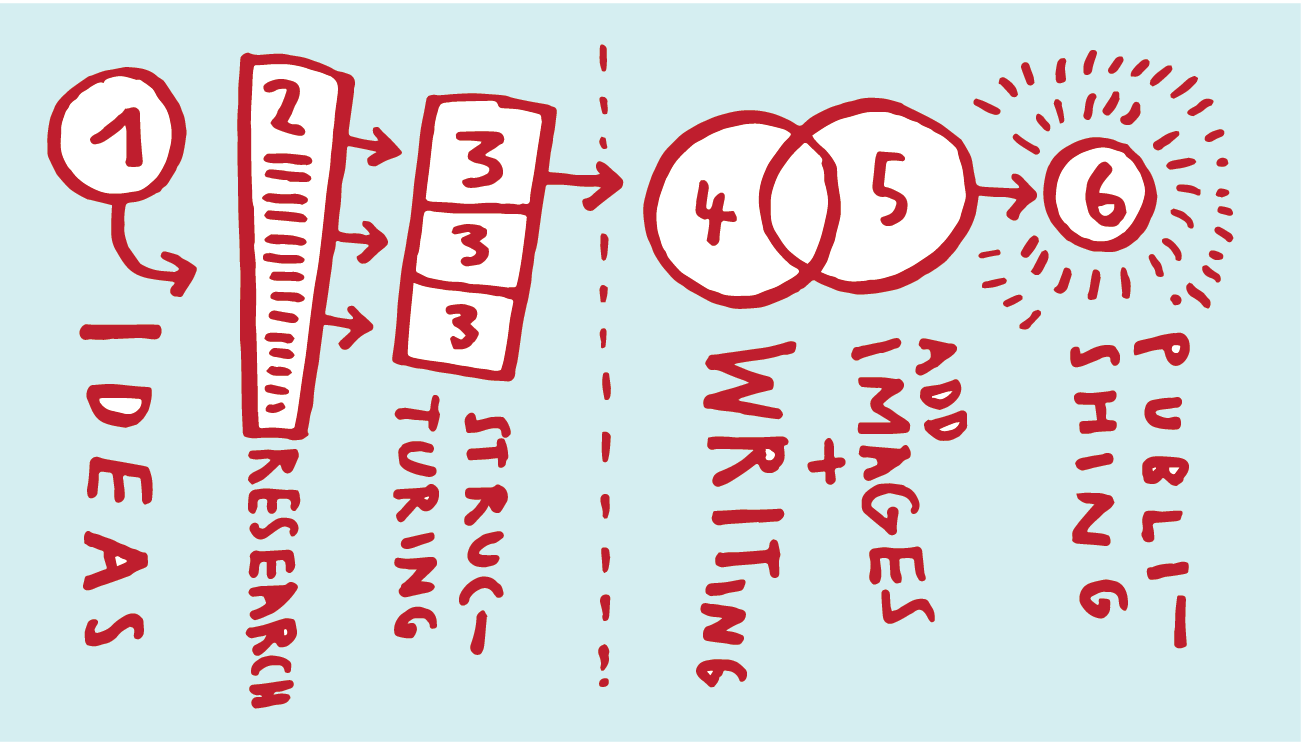 1
IDEAS
2
RESEARCH
3
3
3
STRUC-
TURING
4
WRITING
+
5
ADD
IMAGES
6
PUBLI-
SHING